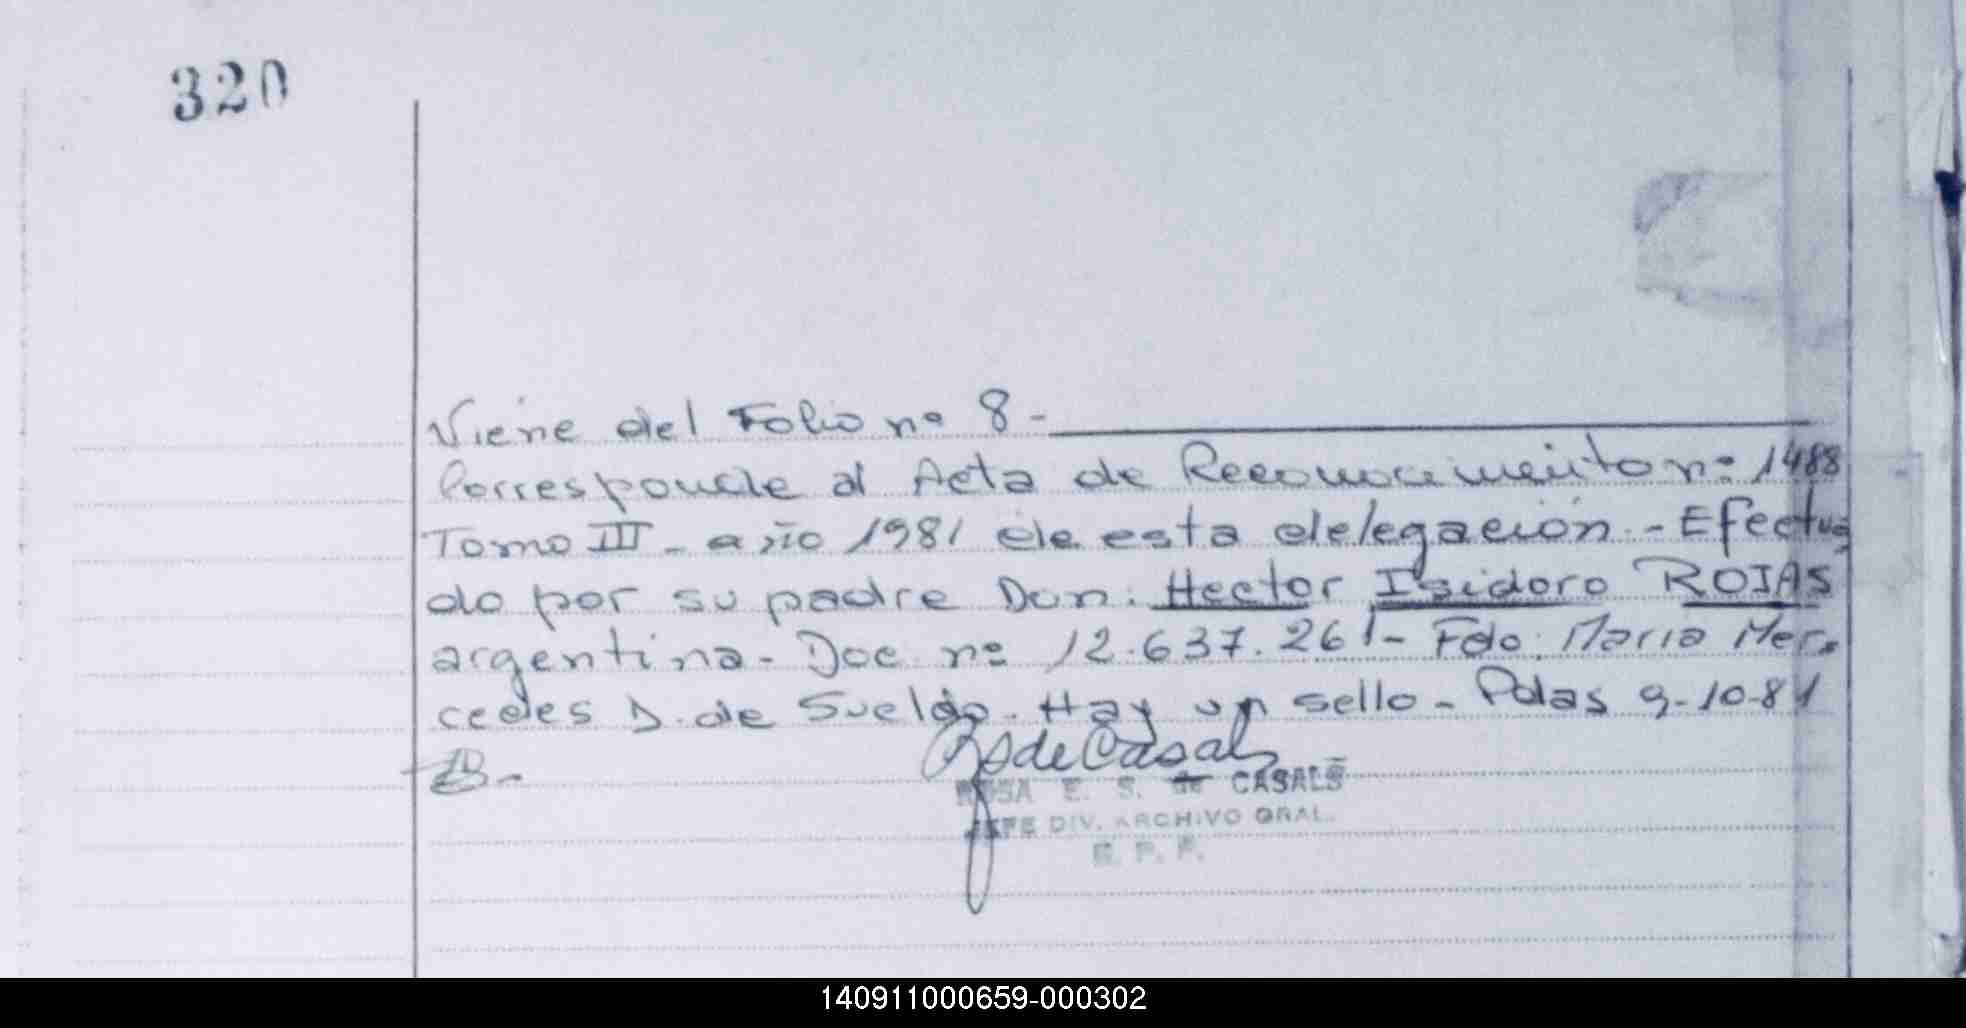 320
Viene del Folio nº 8-
Corresponde al Acta de Reconocimiento nº 1488
Tomo III - año 1981 de esta delegación. - Efectua
do por su padre Don: Hector Isidoro ROJAS
argentina - Doc nº 12.637.261- Fdo: Maria Mer-
cedes D. de Sueldo. Hay un sello - Pdas 9-10-81
RS de Casals
ROSA E. S. de CASALS
JEFE DIV. ARCHIVO GRAL.
R. P. P.
140911000659-000302